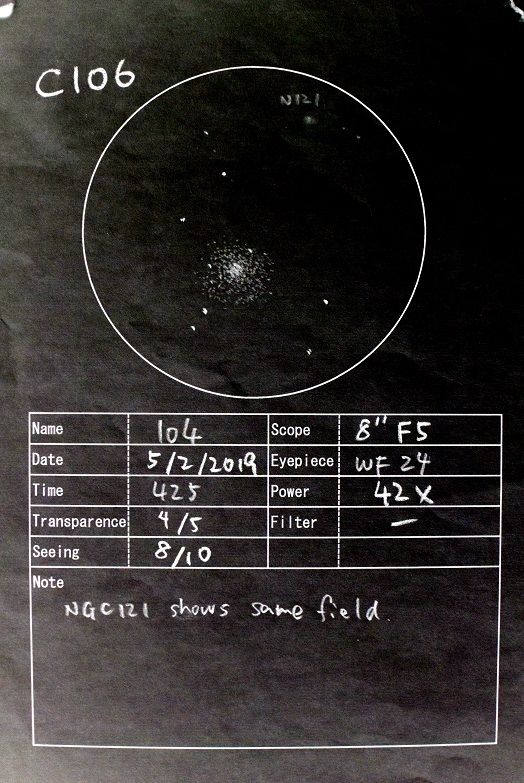 C106
N121
Name 104 Scope 8" F5
Date 5/2/2019 Eyepiece WF 24
Time 425 Power 42x
Transparence 4/5 Filter —
Seeing 8/10
Note
NGC121 shows same field.